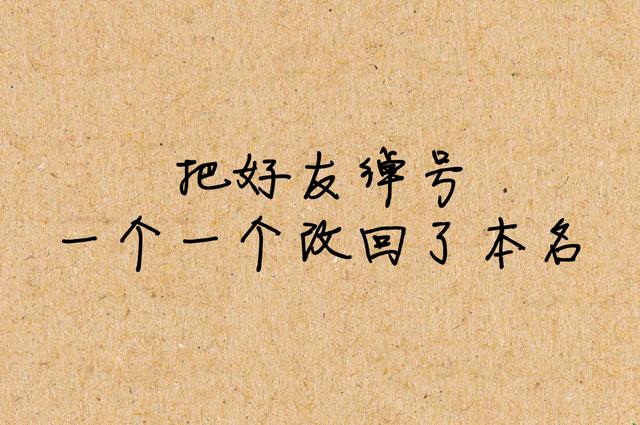 把好友绰号
一个一个改回了本名